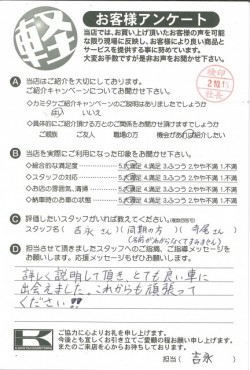 軽
お客様アンケート
当店では、お買い上げ頂いたお客様の声を可能
な限り現場に反映し、お客様により良い商品と
サービスを提供する事に努めています。
大変お手数ですが是非お声をお聞かせ下さい。
A 当店はご紹介を大切にしております。
ご紹介キャンペーンについてお聞かせ下さい。
◇カミタケご紹介キャンペーンのご説明はありましたでしょうか
はい いいえ
◇具体的にご紹介頂ける方とのご関係をお聞かせ頂けますでしょうか
ご親族 ご友人 職場の方 機会があれば紹介したい
B 当店を実際にご利用になった印象をお聞かせ下さい。
◇総合的な満足度 5.大満足 4.満足 3.ふつう 2.やや不満 1.不満
◇スタッフの対応 5.大満足 4.満足 3.ふつう 2.やや不満 1.不満
◇お店の雰囲気、清掃 5.大満足 4.満足 3.ふつう 2.やや不満 1.不満
◇納車時のお車の状態 5.大満足 4.満足 3.ふつう 2.やや不満 1.不満
C 評価したいスタッフがいれば教えてください。
スタッフ名( 吉永さん )( 同期の方 )( 寺尾さん )
D 担当させて頂きましたスタッフへのご指導、ご指導メッセージを
お願いします。応援メッセージもぜひお願いします。
詳しく説明して頂き、とても良い車に
出会えました。これからも頑張って
ください!!
K
ご協力に心よりお礼を申し上げます。
今後とも宜しくお引き立てご愛顧の程お願い申し上げます。
またのご来店を心からお待ちしております。
担当( 吉永 )